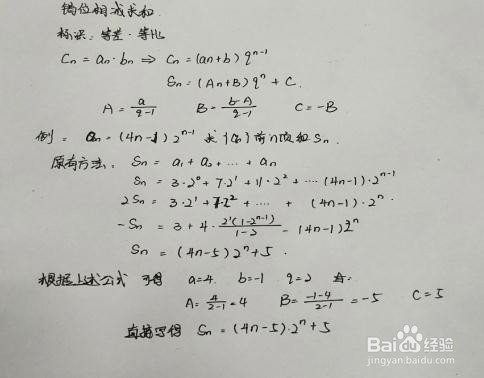 错位相减求和.
标识：等差·等比
Cn = an·bn ⇒ Cn = (an+b) q^(n-1)
Sn = (An+B) q^n + C.
A = a/(q-1)  B = (b-A)/(q-1)  C = -B
例： an = (4n-1) 2^(n-1) 求{an}前n项和Sn.
原有方法: Sn = a1 + a2 + ··· + an
Sn = 3·2^0 + 7·2^1 + 11·2^2 + ···· (4n-1)·2^(n-1)
2Sn = 3·2^1 + 7·2^2 + ···· + (4n-1)·2^n.
-Sn = 3 + 4· 2^1(1-2^(n-1))/(1-2) - (4n-1)2^n
Sn = (4n-5)2^n + 5.
根据上述公式 可得 a=4. b=-1 q=2
A = 4/(2-1) = 4  B = (-1-4)/(2-1) = -5  C = 5
直接写得 Sn = (4n-5)·2^n + 5
Baidu 经验
jingyan.baidu.com